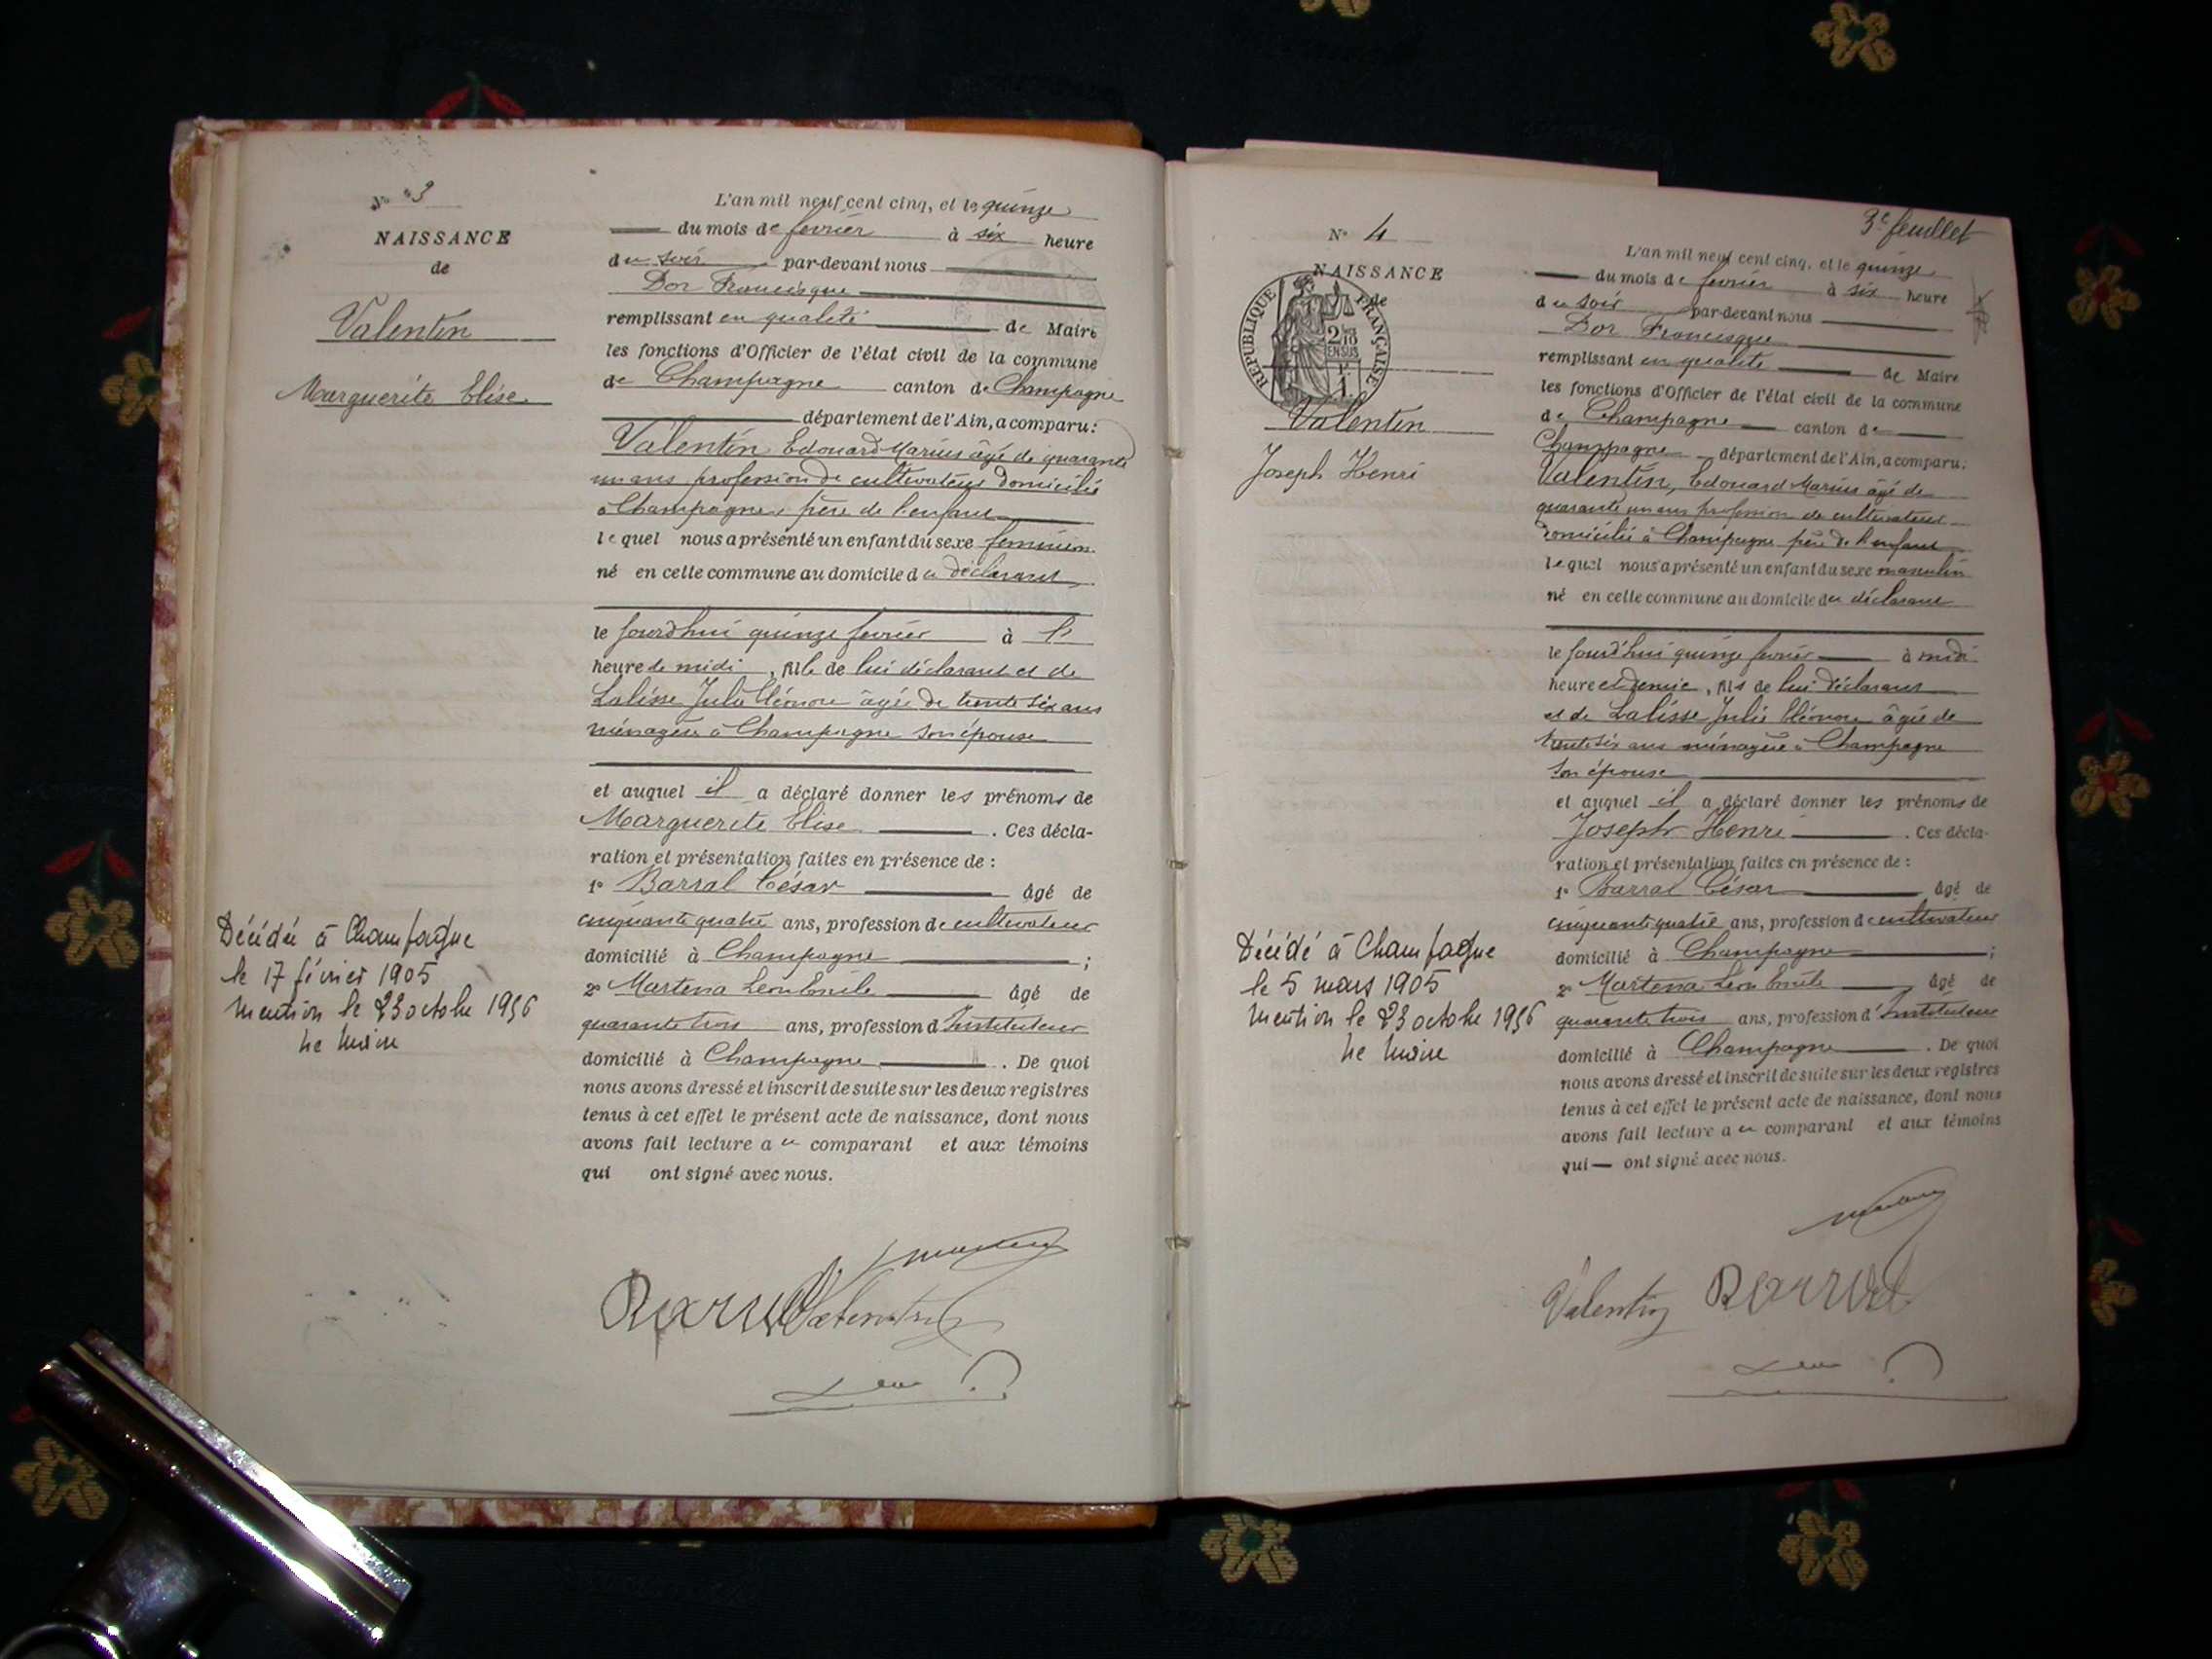 N° 3
NAISSANCE
de
Valentin
Marguerite Elise
Décédée à Champagne
le 17 février 1905
Mention le 23 octobre 1956
Le Maire
L'an mil neuf cent cinq, et le quinze
du mois de fevrier à six heure
du soir par-devant nous
Dor Francisque
remplissant en qualité de Maire
les fonctions d'Officier de l'état civil de la commune
de Champagne canton de Champagne
département de l'Ain, a comparu:
Valentin Edouard Marius âgé de quarante
un ans profession de cultivateur domicilié
à Champagne père de l'enfant
lequel nous a présenté un enfant du sexe feminin
né en cette commune au domicile du déclarant
le jourd'hui quinze fevrier à l'
heure de midi, fille de lui déclarant et de
Lalisse Julie Eléonore âgée de trente six ans
ménagère à Champagne son épouse
et auquel il a déclaré donner les prénoms de
Marguerite Elise. Ces décla-
ration et présentation faites en présence de :
1° Barral César âgé de
cinquante quatre ans, profession de cultivateur
domicilié à Champagne ;
2° Martena Léon Emile âgé de
quarante trois ans, profession d'Instituteur
domicilié à Champagne. De quoi
nous avons dressé et inscrit de suite sur les deux registres
tenus à cet effet le présent acte de naissance, dont nous
avons fait lecture au comparant et aux témoins
qui ont signé avec nous.
Barral Valentin
Dor
3e feuillet
N° 4
NAISSANCE
de
RÉPUBLIQUE FRANÇAISE
2/10
EN SUS
Valentin
Joseph Henri
Décédé à Champagne
le 5 mars 1905
Mention le 23 octobre 1956
Le Maire
L'an mil neuf cent cinq, et le quinze
du mois de fevrier à six heure
du soir par-devant nous
Dor Francisque
remplissant en qualité de Maire
les fonctions d'Officier de l'état civil de la commune
de Champagne canton de
Champagne département de l'Ain, a comparu:
Valentin, Edouard Marius âgé de
quarante un ans profession de cultivateur
domicilié à Champagne père de l'enfant
lequel nous a présenté un enfant du sexe masculin
né en cette commune au domicile du déclarant
le jourd'hui quinze fevrier à midi
heure et demie, fils de lui déclarant
et de Lalisse Julie Eléonore âgée de
trente six ans ménagère à Champagne
son épouse
et auquel il a déclaré donner les prénoms de
Joseph Henri. Ces décla-
ration et présentation faites en présence de :
1° Barral César âgé de
cinquante quatre ans, profession de cultivateur
domicilié à Champagne ;
2° Martena Léon Emile âgé de
quarante trois ans, profession d'Instituteur
domicilié à Champagne. De quoi
nous avons dressé et inscrit de suite sur les deux registres
tenus à cet effet le présent acte de naissance, dont nous
avons fait lecture au comparant et aux témoins
qui ont signé avec nous.
Valentin Barral
Dor